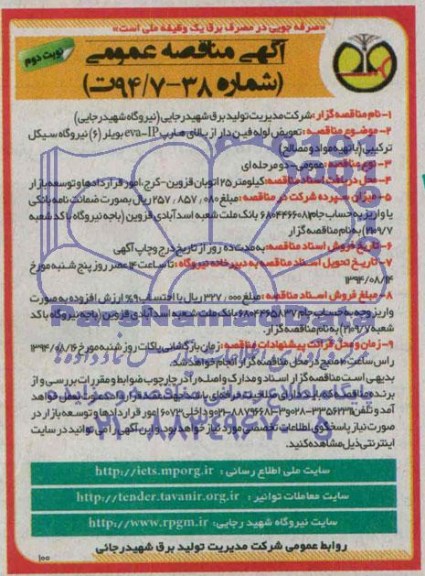 «صرفه جویی در مصرف برق یک وظیفه ملی است»
نوبت دوم
آگهی مناقصه عمومی
(شماره ۳۸-۹۴/۷ت)
۱-نام مناقصه گزار: شرکت مدیریت تولید برق شهید رجایی (نیروگاه شهید رجایی)
۲-موضوع مناقصه: تعویض لوله فین دار از بالای هدر eva-IP بویلر (۶) نیروگاه سیکل
ترکیبی (با تهیه مواد و مصالح)
۳-نوع مناقصه: عمومی-دو مرحله ای
۴-محل دریافت اسناد مناقصه: کیلومتر ۲۵ اتوبان قزوین-کرج، امور قراردادها و توسعه بازار
۵-میزان سپرده شرکت در مناقصه: مبلغ ۲۵۷/۸۵۷/۰۸۰ ریال بصورت ضمانت نامه بانکی
یا واریز به حساب جام ۶۸۰۴۴۶۶۰۸ بانک ملت شعبه اسدآبادی قزوین (باجه نیروگاه با کد شعبه
۲۱۰۹/۷) به نام مناقصه گزار
۶-تاریخ فروش اسناد مناقصه: به مدت ده روز از تاریخ درج و چاپ آگهی
۷-تاریخ تحویل اسناد مناقصه به دبیرخانه نیروگاه: تا ساعت ۱۴ عصر روز پنج شنبه مورخ
۱۳۹۴/۰۸/۱۴
۸-مبلغ فروش اسناد مناقصه: مبلغ ۳۲۷/۰۰۰ ریال با احتساب ۹٪ ارزش افزوده به صورت
واریز وجه به حساب جام ۶۸۰۴۴۶۵۸۳۷ بانک ملت شعبه اسدآبادی قزوین (باجه نیروگاه با کد
شعبه ۲۱۰۹/۷) به نام مناقصه گزار.
۹-زمان و محل قرائت پیشنهادات مناقصه: زمان بازگشایی پاکات روز شنبه مورخ ۱۳۹۴/۰۸/۱۶
راس ساعت ۱۰ صبح در محل مناقصه گزار انجام خواهد شد.
بدیهی است مناقصه گزار اسناد و مدارک واصله را در چارچوب ضوابط و مقررات بررسی و از
برنده مناقصه که
آمد و تلفن ۰۲۸-۳۳۵۶۲۳۱ و ۰۲۱-۸۸۷۹۶۶۸۱ داخلی ۶۰۷۳ امور قراردادها و توسعه بازار در
صورت نیاز پاسخگوی اطلاعات تخصصی مورد نیاز خواهد بود و این آگهی را می توانید در سایت
اینترنتی ذیل مشاهده کنید.
سایت ملی اطلاع رسانی: http://iets.mporg.ir
سایت معاملات توانیر: http://tender.tavanir.org.ir
سایت نیروگاه شهید رجایی: http://www.rpgm.ir
روابط عمومی شرکت مدیریت تولید برق شهید رجائی
۱۰۰